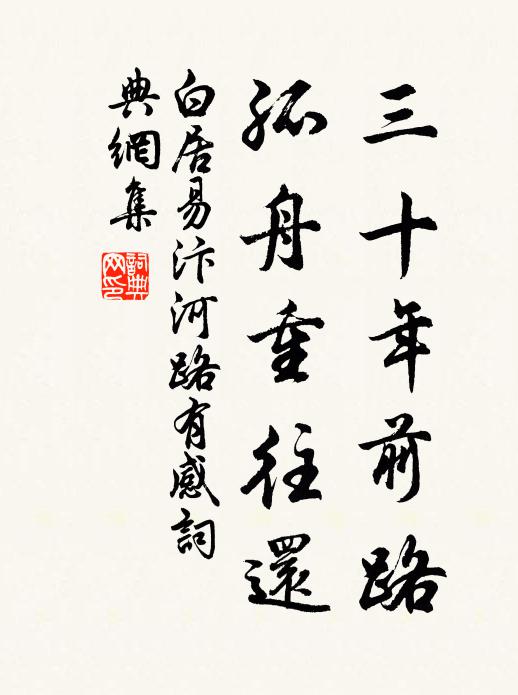 三十年前路
孤舟重往還
白居易汴河路有感詞
典網集
詞典
网印